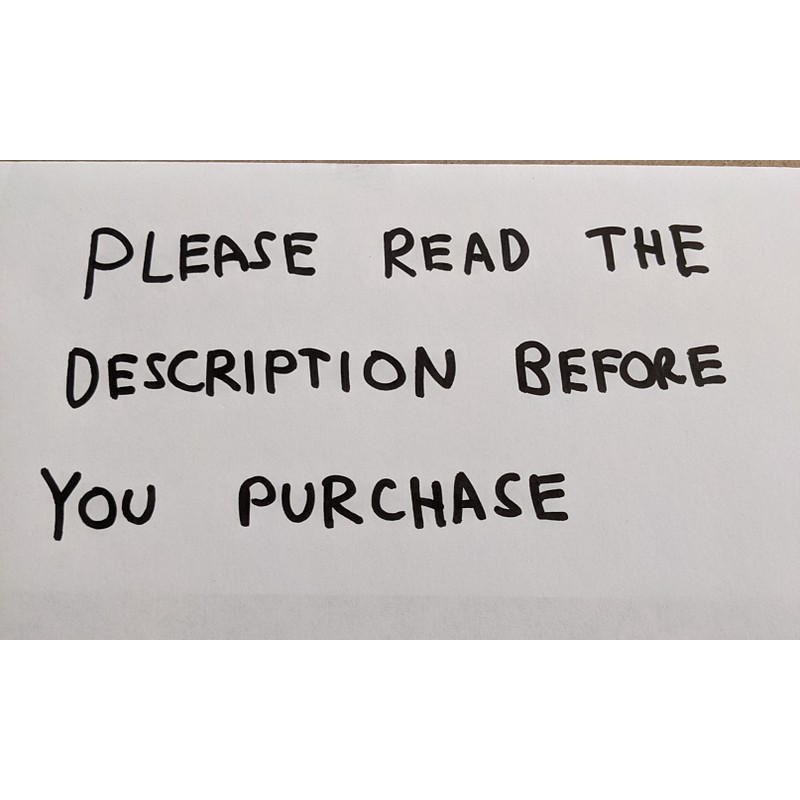 PLEASE READ THE
DESCRIPTION BEFORE
YOU PURCHASE